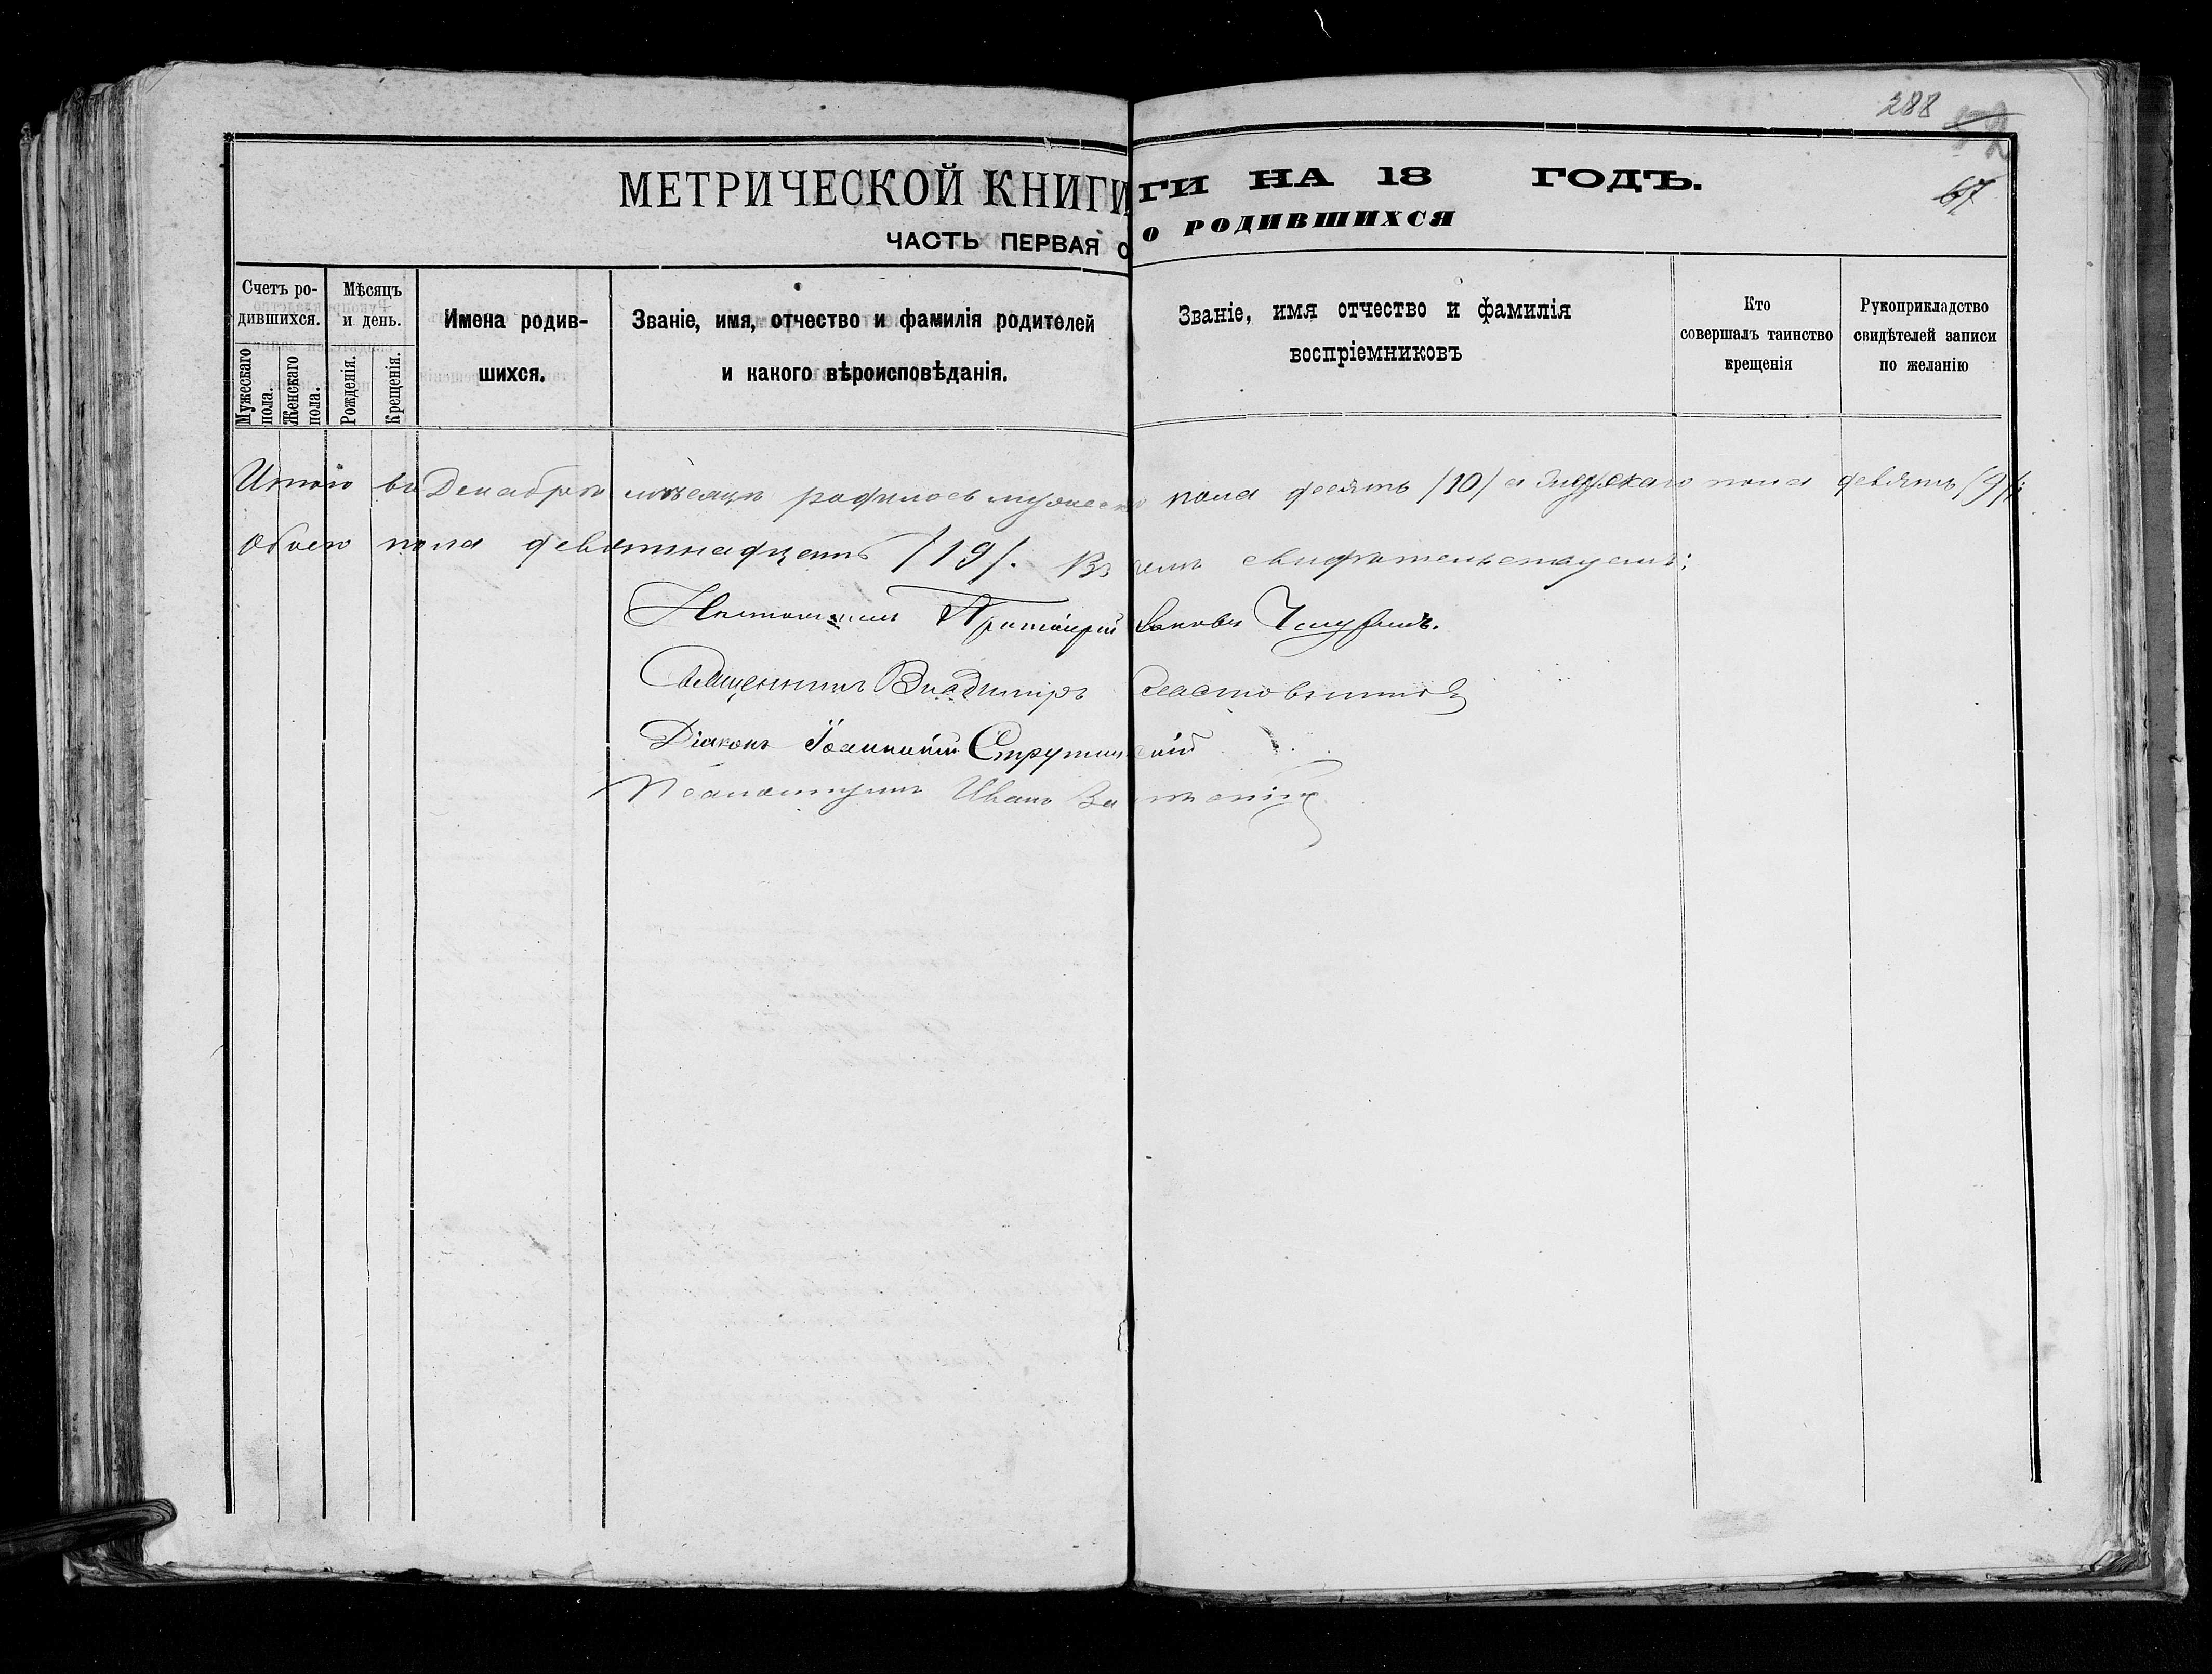 288
67
МЕТРИЧЕСКОЙ КНИГИ НА 18 ГОДЪ.
ЧАСТЬ ПЕРВАЯ О РОДИВШИХСЯ
Счетъ ро-
дившихся.
Мужескаго пола.
Женскаго пола.
Мѣсяцъ
и день.
Рожденія.
Крещенія.
Имена родив-
шихся.
Званіе, имя, отчество и фамилія родителей
и какого вѣроисповѣданія.
Званіе, имя отчество и фамилія
воспріемниковъ
Кто
совершалъ таинство
крещенія
Рукоприкладство
свидѣтелей записи
по желанію
Итого въ Декабрѣ мѣсяцѣ родилось мужеска пола десять /10/ а женскаго пола девять /9/;
Обоего пола девятнадцать /19/. Въ чемъ свидѣтельствуемъ:
Протоіерей Іаковъ
Священникъ Владиміръ
Діаконъ Іоанникій
Псаломщикъ Иванъ